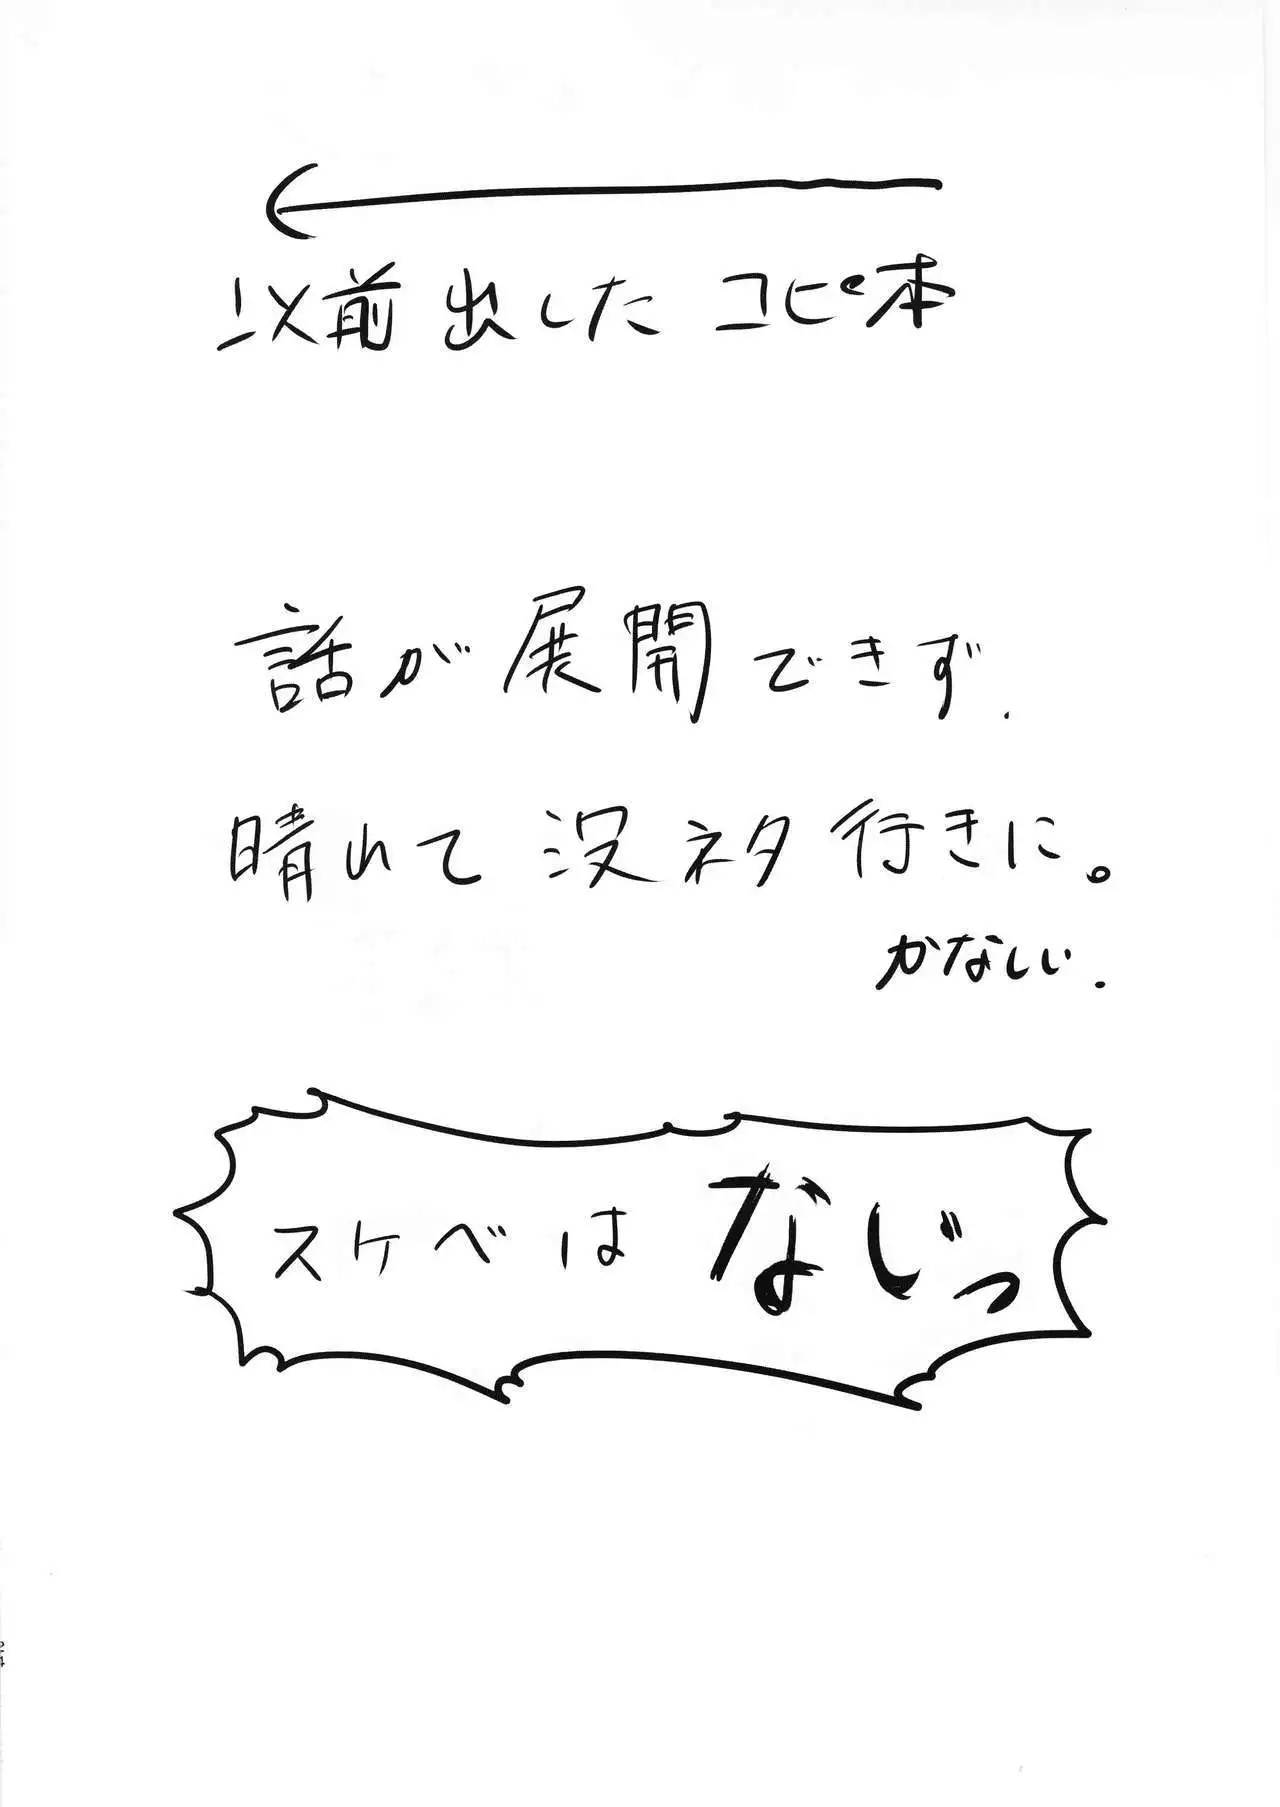 以前出したコピ本
話が展開できず.
晴れて没ネタ行きに。
かなしい.
スケベはなしっ